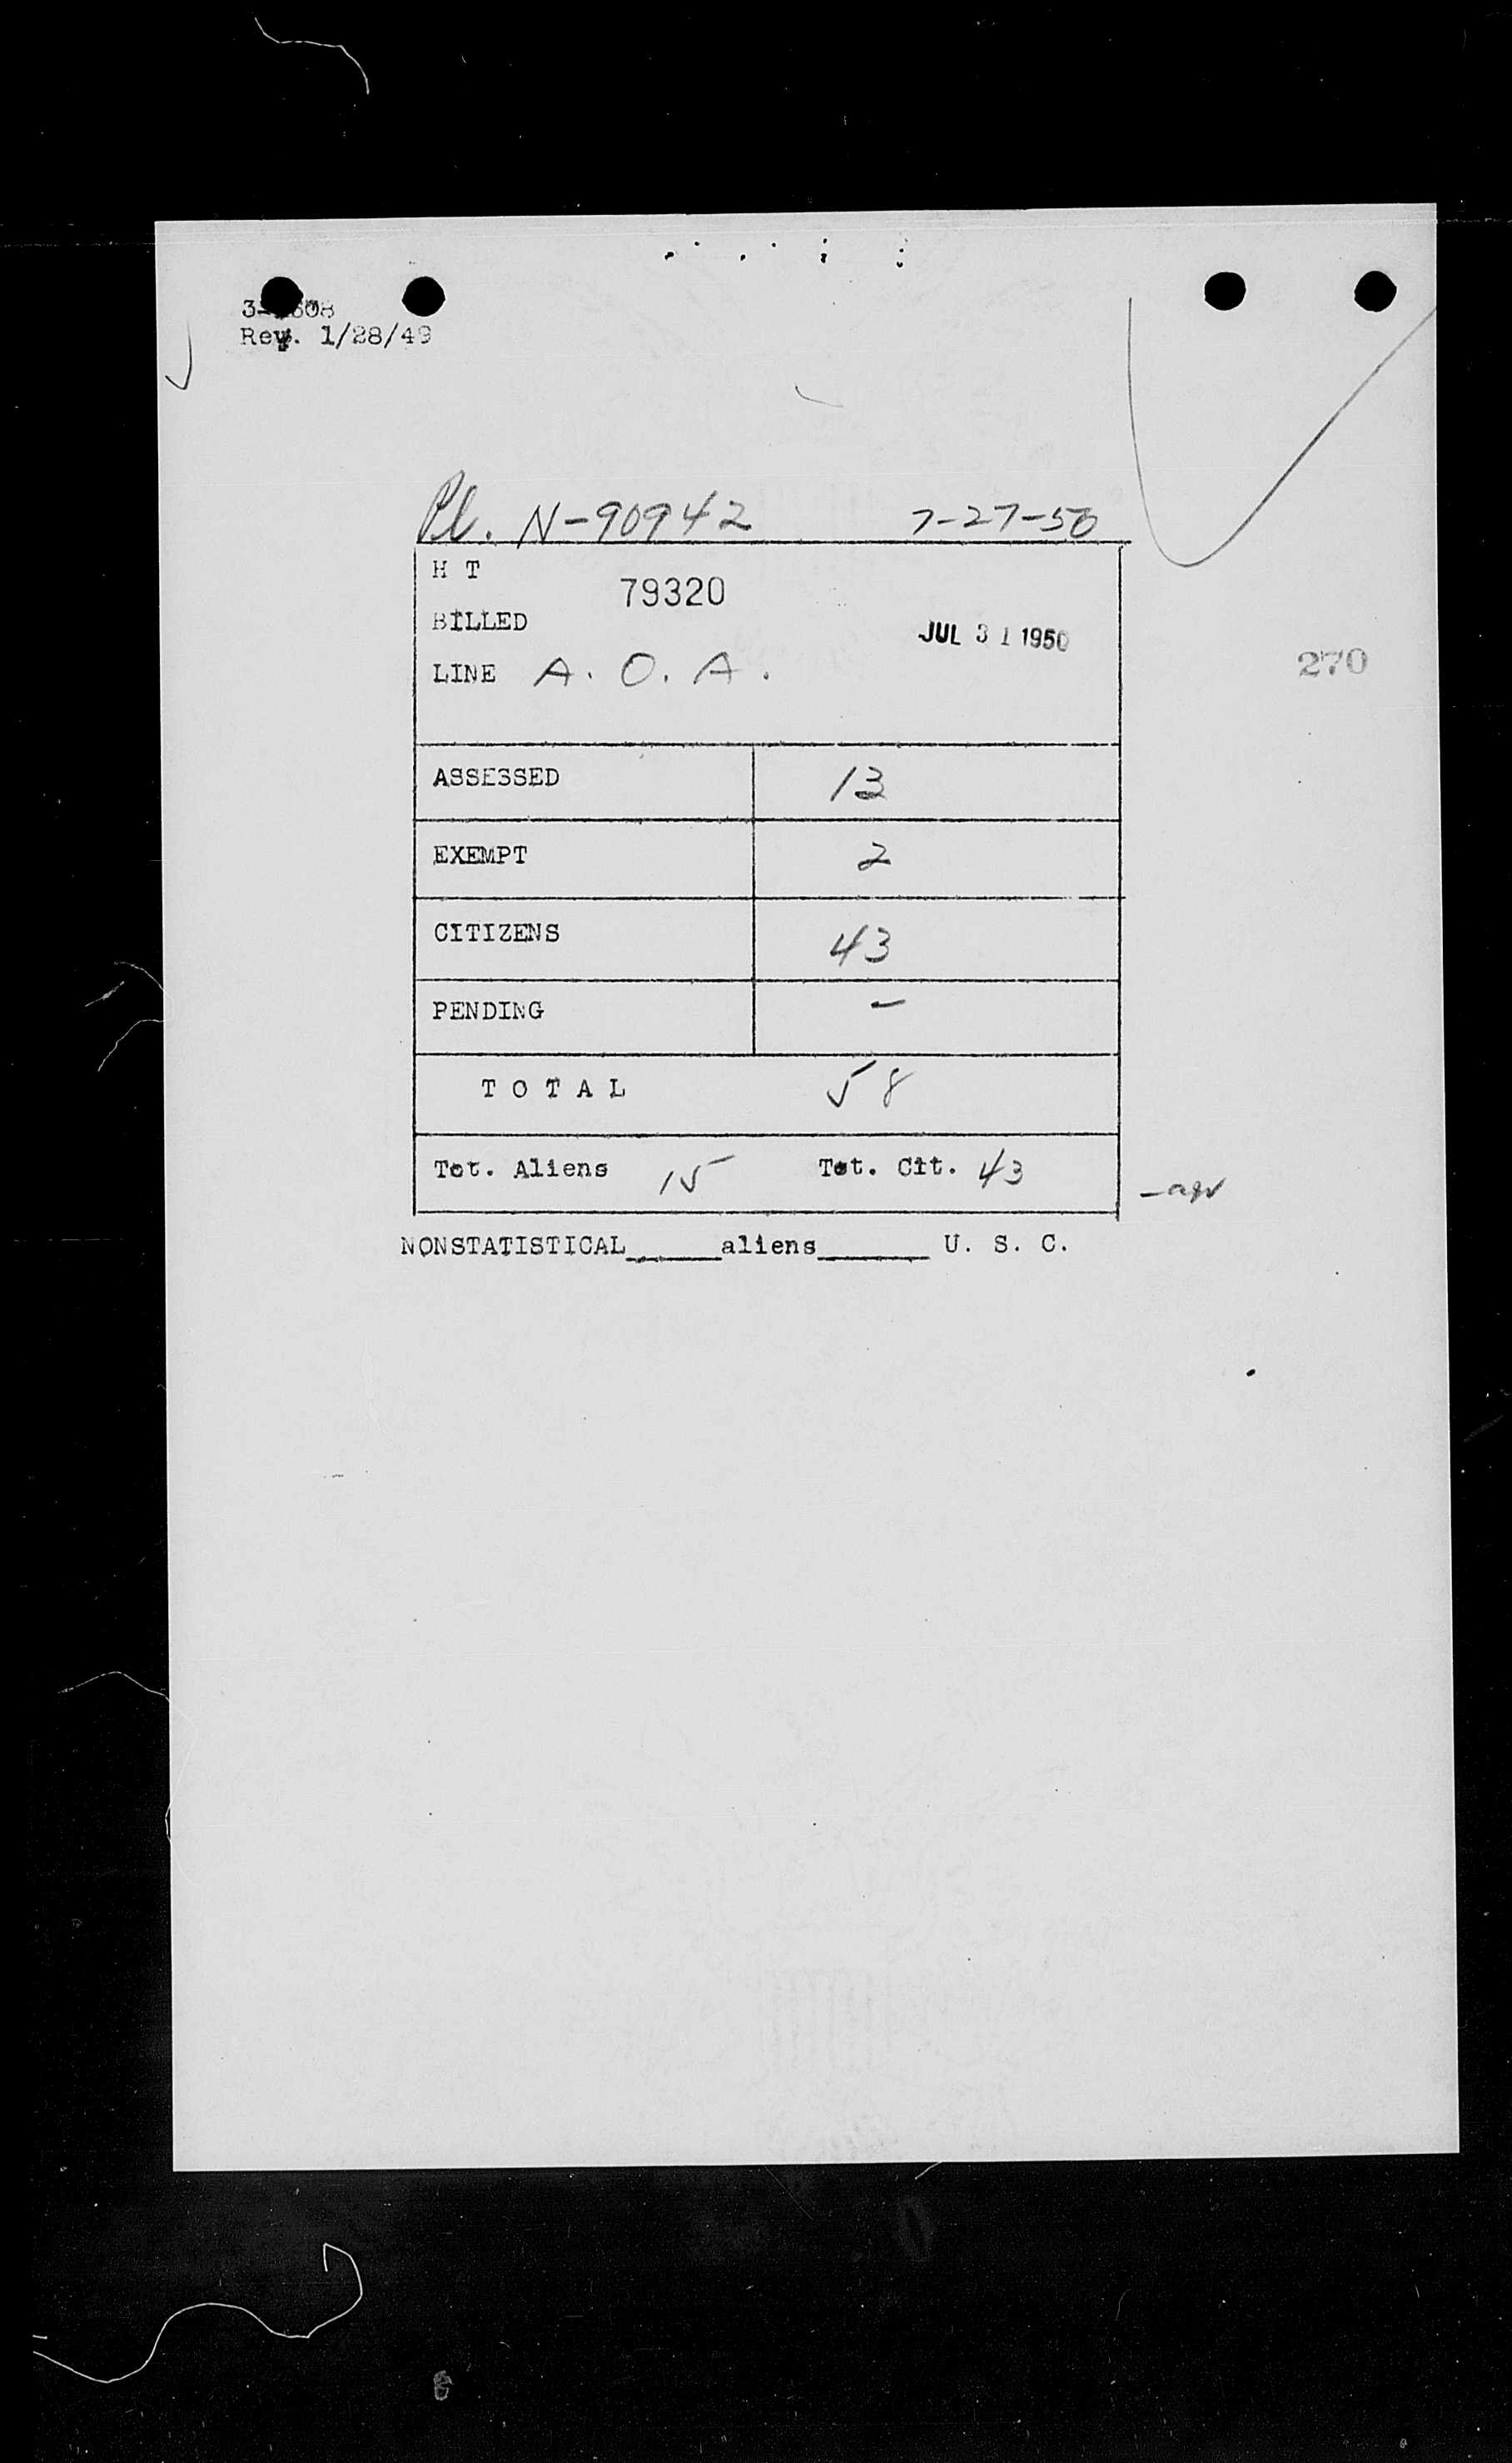 Rev. 1/28/49
Pl. N-90942 7-27-50
H T
79320
BILLED
JUL 31 1950
LINE A. O. A.
270
ASSESSED 13
EXEMPT 2
CITIZENS 43
PENDING -
T O T A L 58
Tot. Aliens 15 Tot. Cit. 43
NONSTATISTICAL_____aliens______ U. S. C.